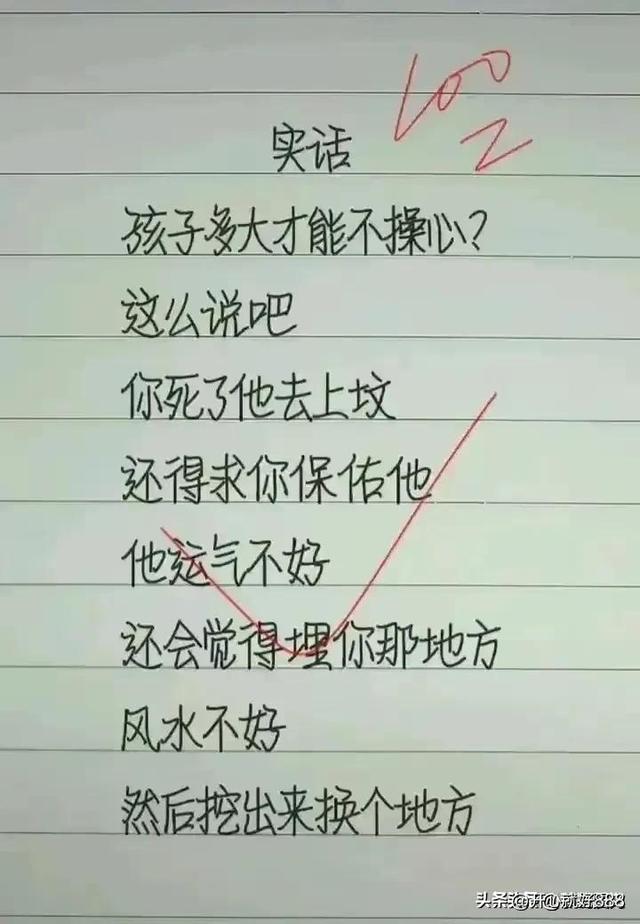 100
实话
孩子多大才能不操心?
这么说吧
你死了他去上坟
还得求你保佑他
他运气不好
还会觉得埋你那地方
风水不好
然后挖出来换个地方